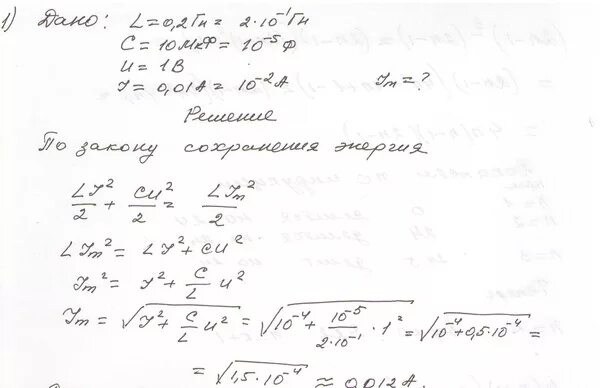 1) Дано: L = 0,2 Гн = 2·10⁻¹ Гн
C = 10 МкФ = 10⁻⁵ Ф
U = 1 В
I = 0,01 A = 10⁻² A Im = ?
Решение
По закону сохранения энергия
LI²/2 + CU²/2 = LIm²/2
LIm² = LI² + CU²
Im² = I² + C/L U²
Im = √(I² + C/L U²) = √(10⁻⁴ + 10⁻⁵/2·10⁻¹ · 1²) = √(10⁻⁴ + 0,5·10⁻⁴) =
= √(1,5·10⁻⁴) ≈ 0,012 A.